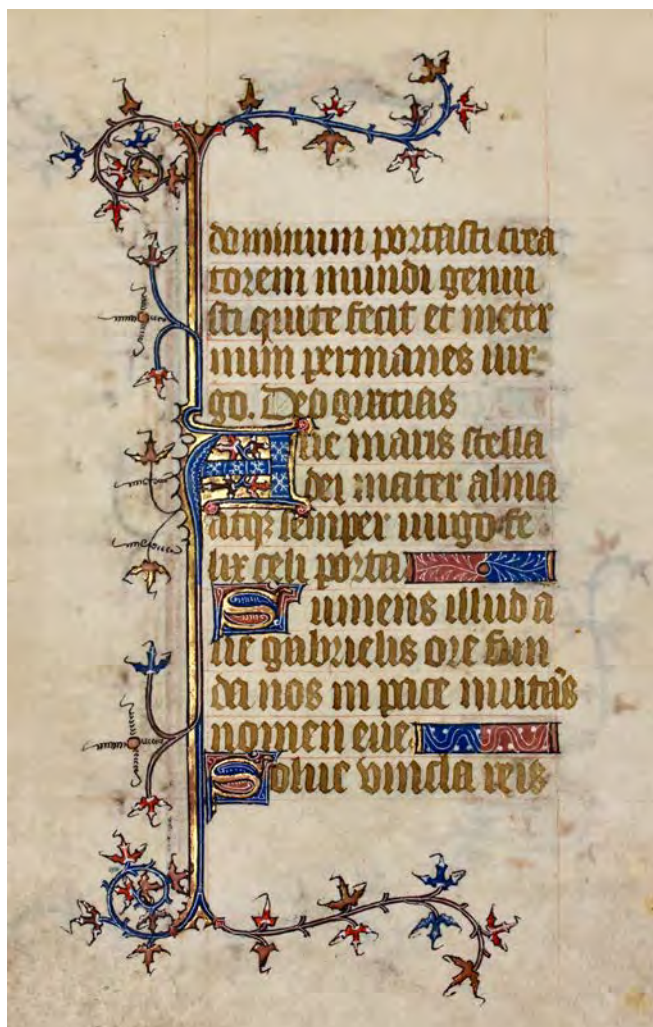 dominum portasti crea
torem mundi genui
sti qui te fecit et in eter
num permanes uir
go. Deo gratias
Aue maris stella
dei mater alma
atq; semper uirgo fe
lix celi porta
Sumens illud a
ue gabrielis ore fun
da nos in pace mutãs
nomen eue.
Solue vincla reis